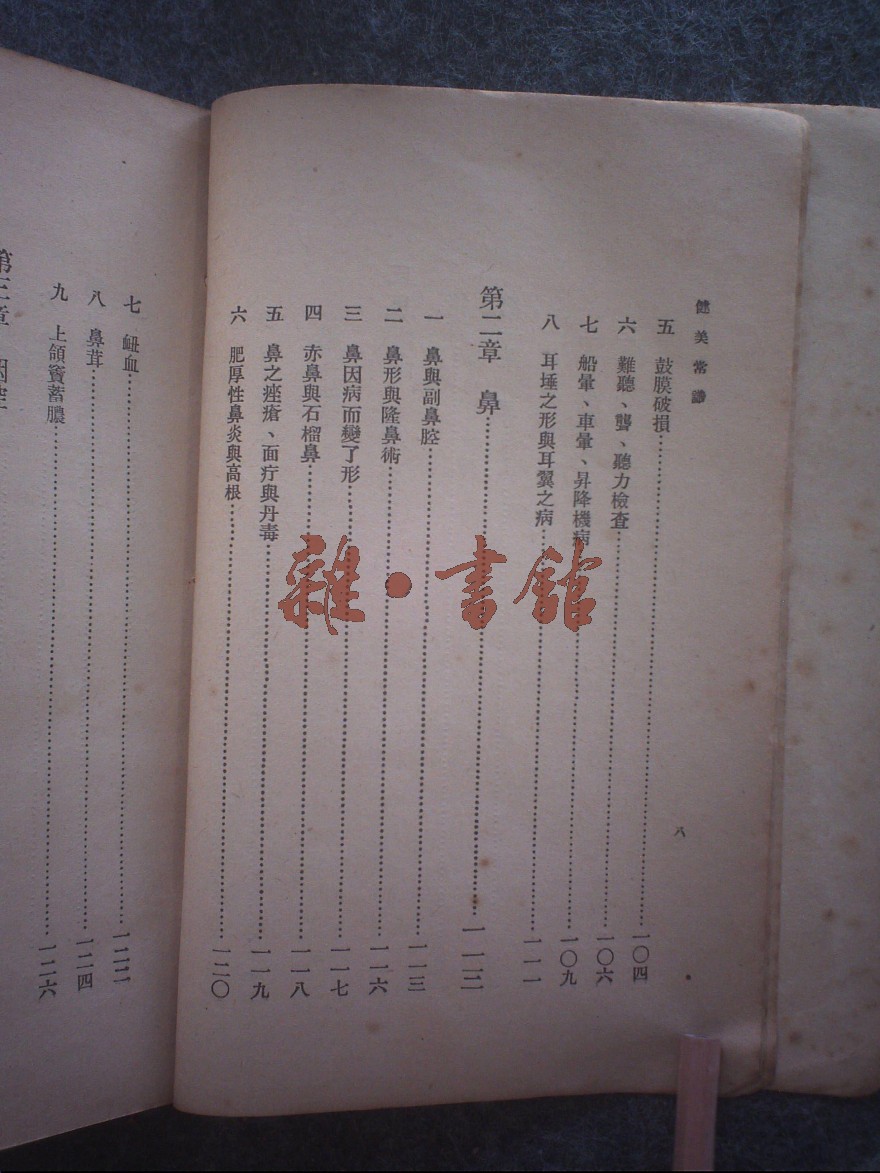 健美常識
五　鼓膜破損……一〇四
六　難聽、聾、聽力檢查……一〇六
七　船暈、車暈、昇降機病……一〇九
八　耳埵之形與耳翼之病……一一一
第二章　鼻……一一三
一　鼻與副鼻腔……一一三
二　鼻形與隆鼻術……一一六
三　鼻因病而變了形……一一七
四　赤鼻與石榴鼻……一一八
五　鼻之痤瘡、面疔與丹毒……一一九
六　肥厚性鼻炎與高根……一二〇
八
七　衄血……一二二
八　鼻茸……一二四
九　上頜竇蓄膿……一二六
第三章
雜·書館